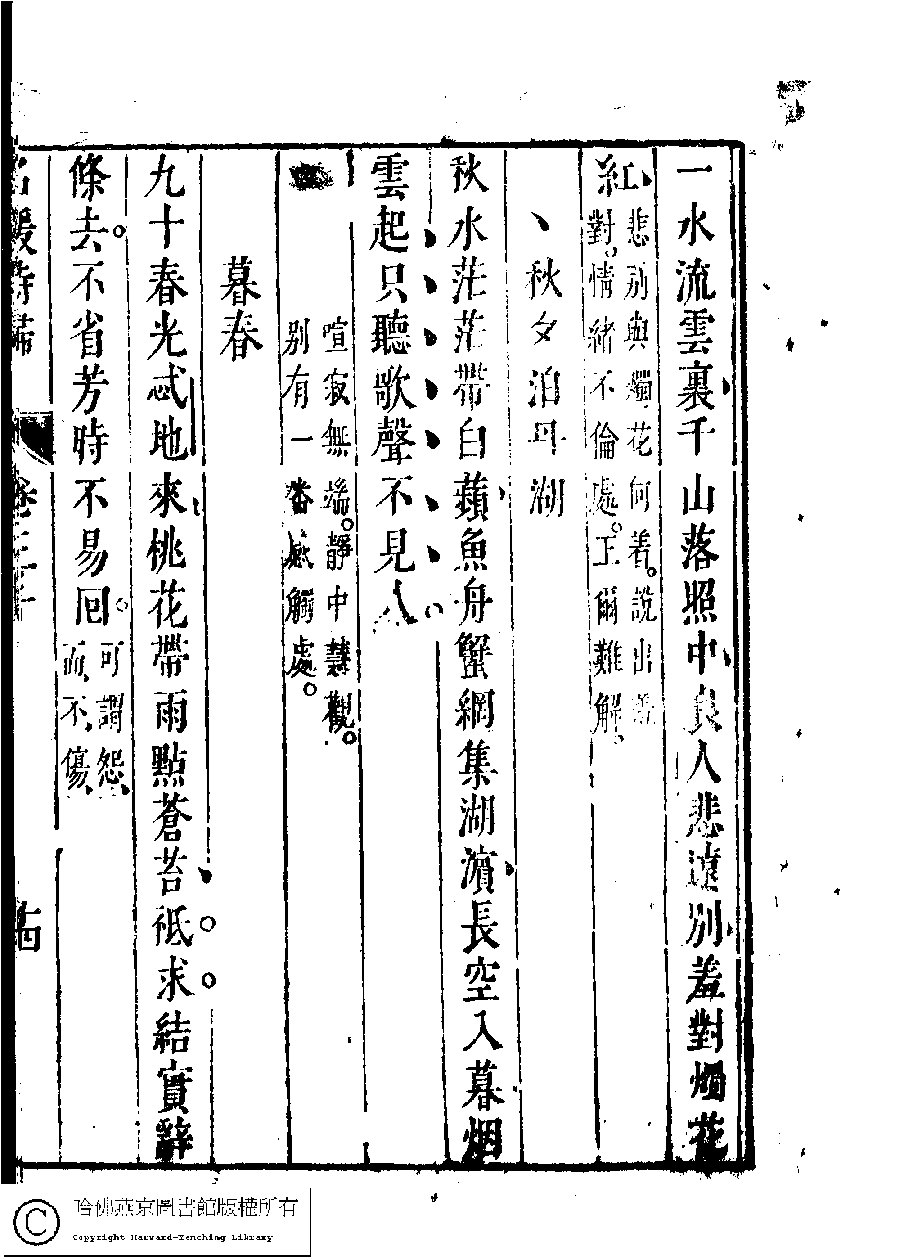 一水流雲裏千山落照中良人悲遠別羞對燭花
紅悲別與燭花何着說出
對情緒不倫處正爾難解
秋夕泊丹湖
秋水茫茫帶白蘋魚舟蟹網集湖濵長空入暮烟
雲起只聽歌聲不見人
喧寂無端靜中慧觀
別有一番感觸處
暮春
九十春光忒地來桃花帶雨點蒼苔祗求結實辭
條去不省芳時不易囘可謂怨
而不傷
名媛詩歸 卷三十
哈佛燕京圖書館版權所有
Copyright Harvard-Yenching Library